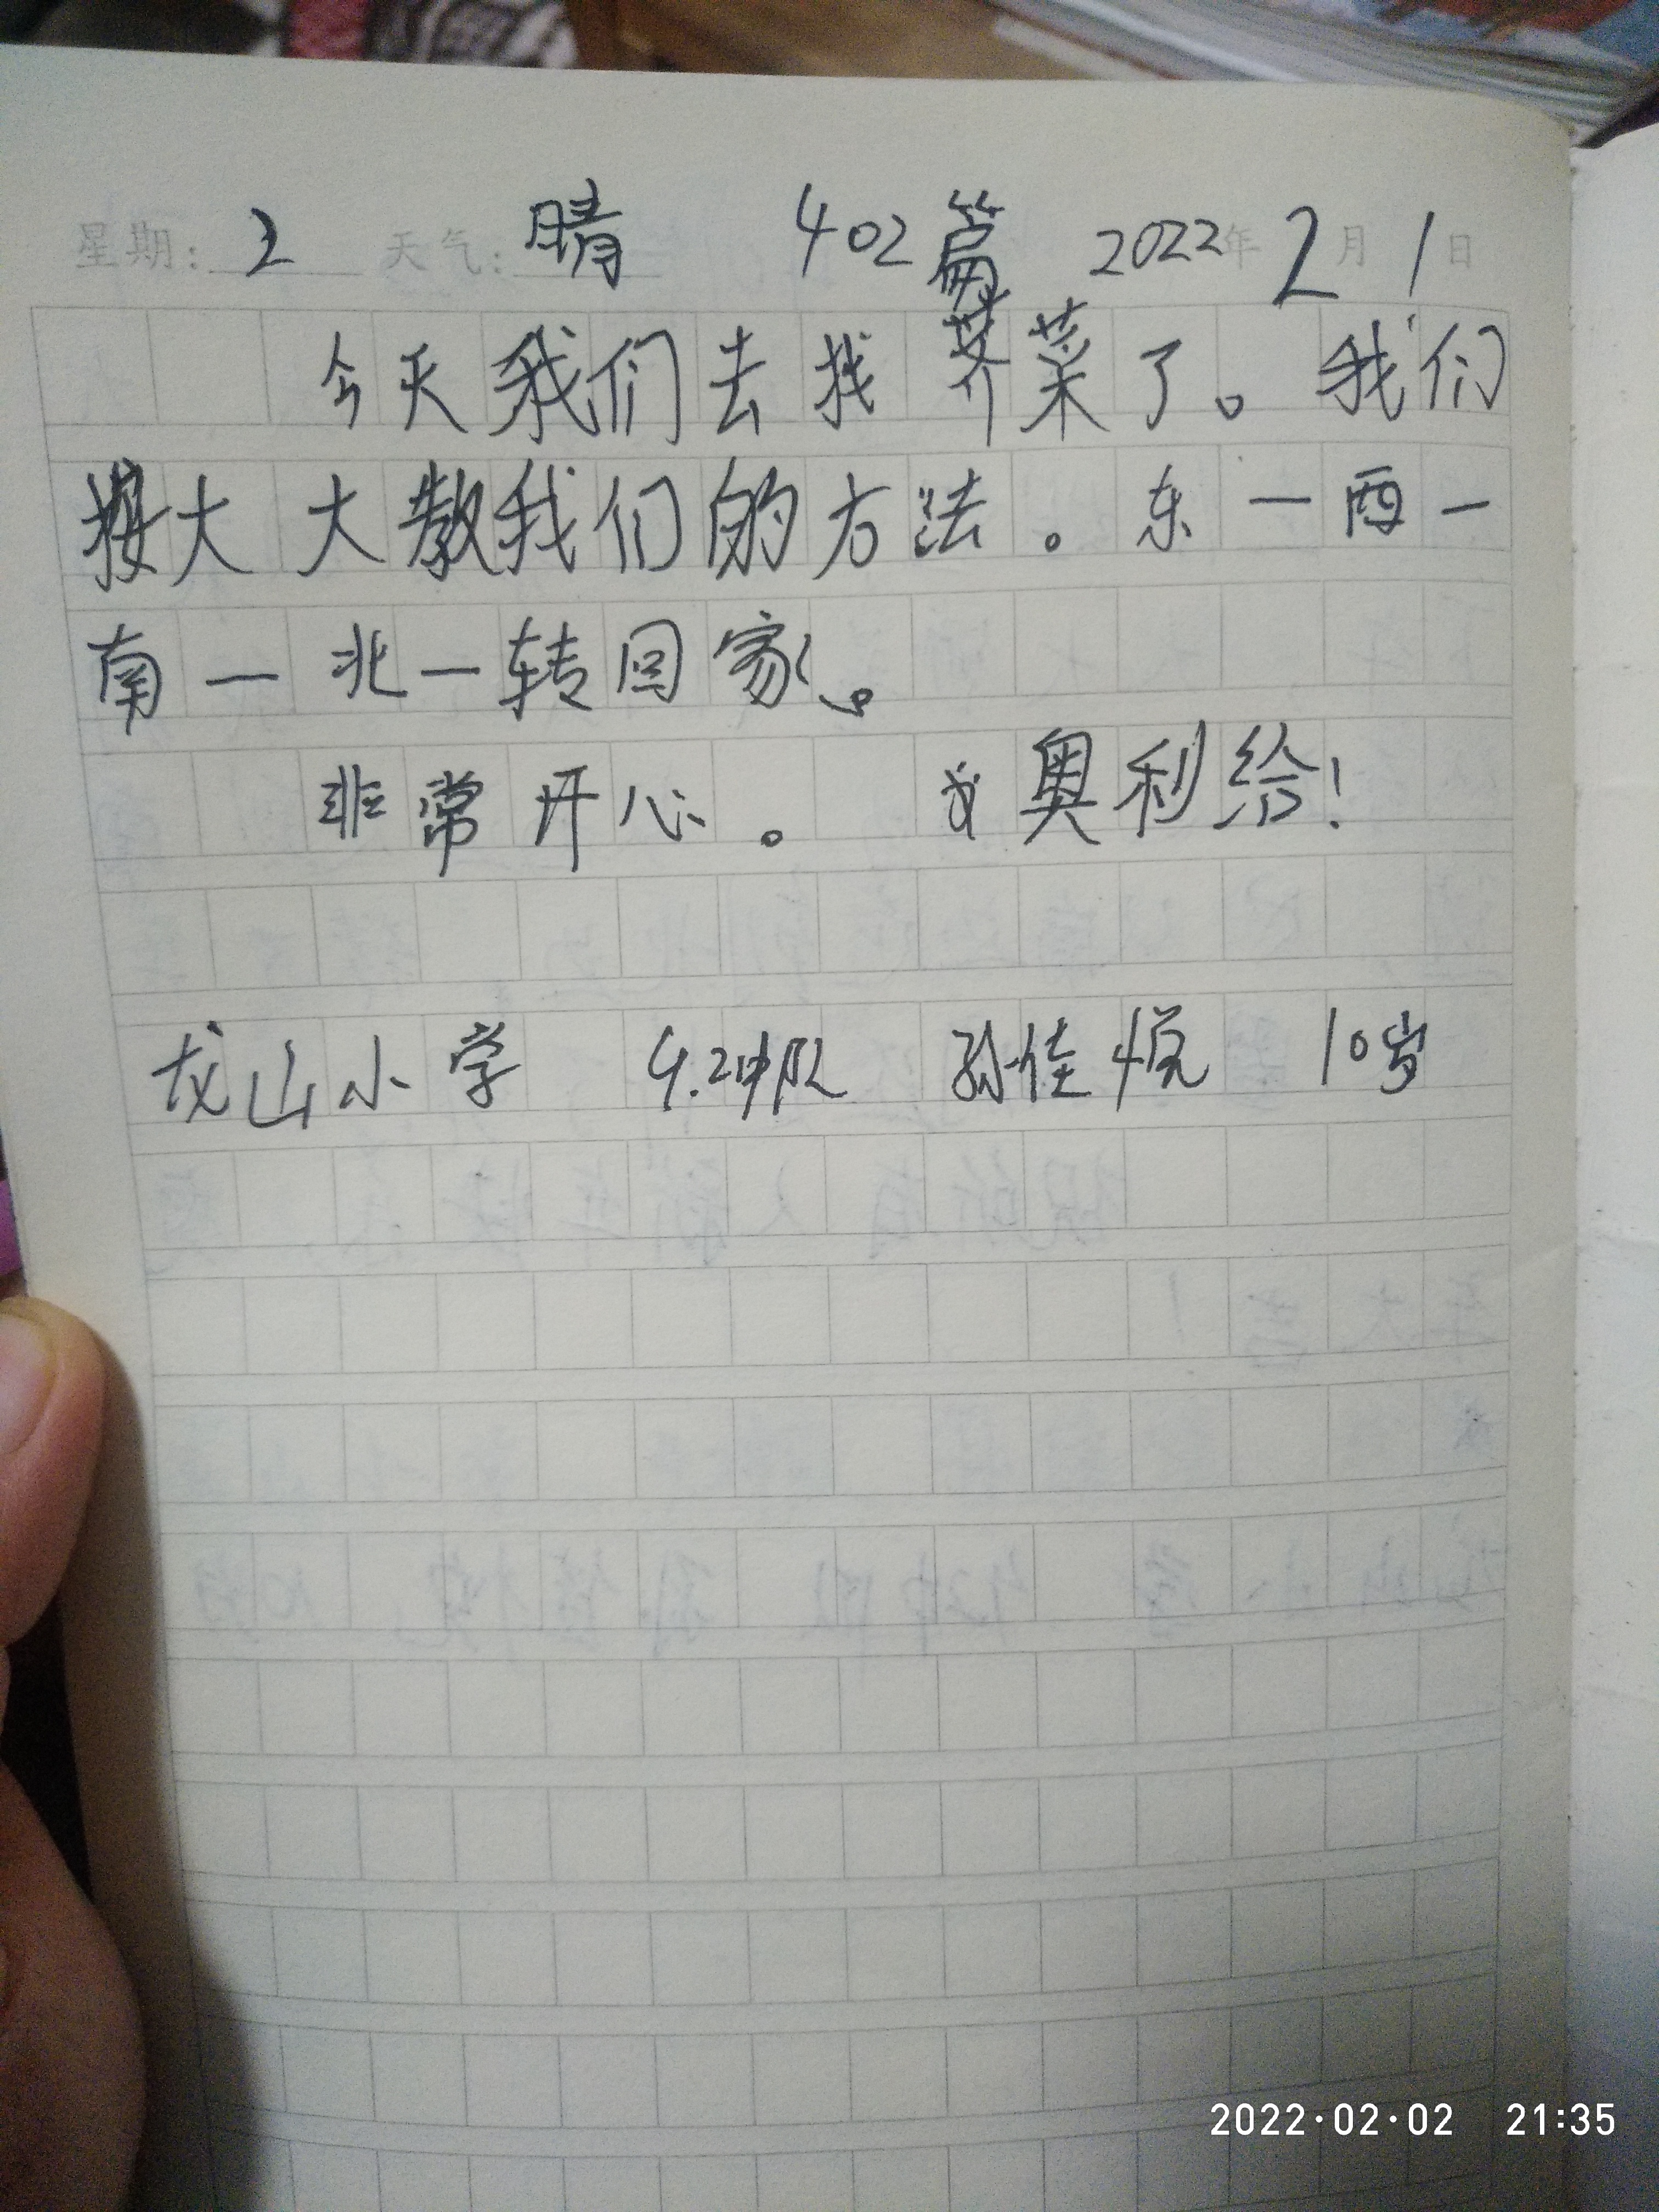 星期: 2 天气: 晴 402篇 2022年2月1日
今天我们去找荠菜了。我们
按大大教我们的方法。东一西一
南一北一转回家。
非常开心。 奥利给!
龙山小学 4.2中队 孙佳悦 10岁
2022·02·02 21:35